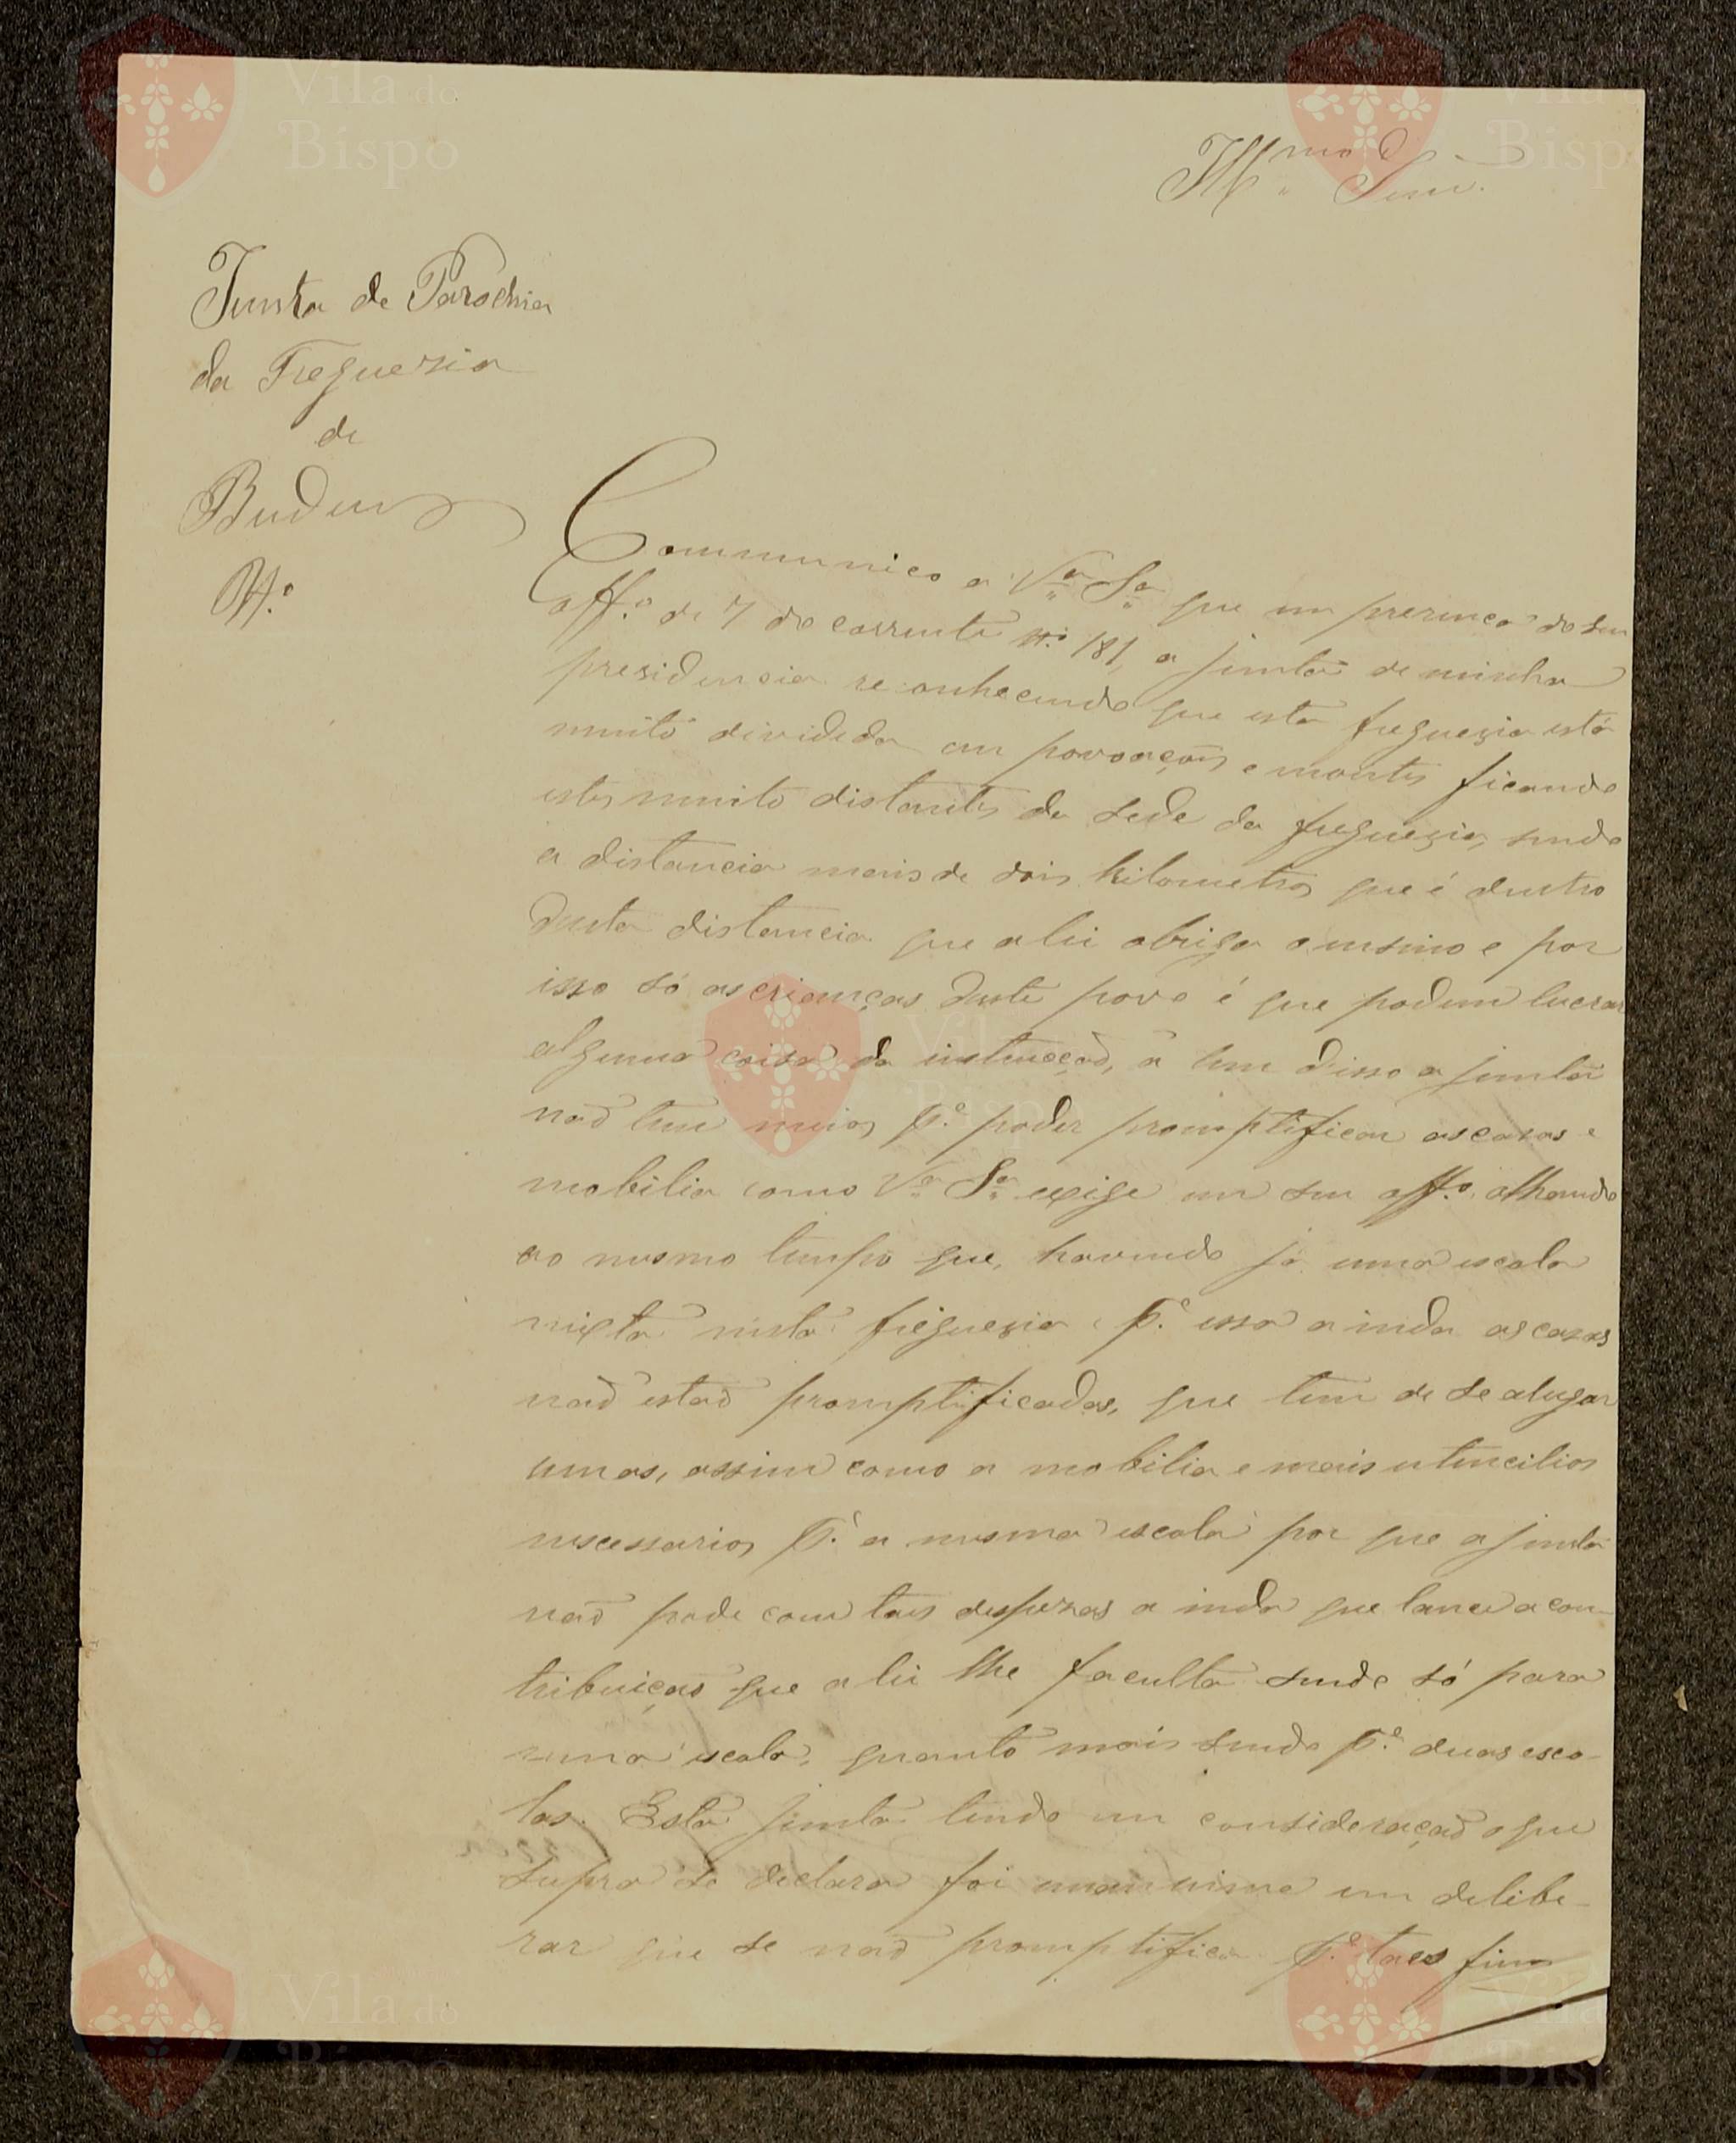 Ill.mo Snr.
Junta de Parochia
da Freguezia
de
Budens
N.º
Communico a V.a S.a que em presença do seu
off.º de 7 do corrente N.º 181, a junta de minha
presidencia reconhecendo que esta freguezia está
muito divideda em povoações e montes ficando
estes muito distantes da sede da freguezia, sendo
a distancia mais de dois kilometros que é dentro
desta distancia que a lei obriga o ensino e por
isso só as crianças deste povo é que podem lucrar
alguma coisa da instrucção, a lem disso a junta
não tem meios p.ª poder promptificar as casas e
mobilia como V.a S.a exige em seu off.º, olhando
ao mesmo tempo que, havendo já uma escola
mixta nesta freguezia p.ª essa a inda as casas
não estão promptificadas, que tem de se alugar
umas, assim como a mobilia e mais utencilios
nescessarios p.ª a mesma escola por que a junta
não pode com tais despezas a inda que lance a con-
tribuição que a lei lhe faculta sendo só para
uma escola, quanto mais sendo p.ª duas esco-
las. Esta junta tendo em consideração o que
supra se declara foi unanime em delibe-
rar que se não promptifica p.ª taes fins
Vila do
Bispo
Vila
Bispo
Vila
Bispo
Vila do
Bispo
Vila
Bispo